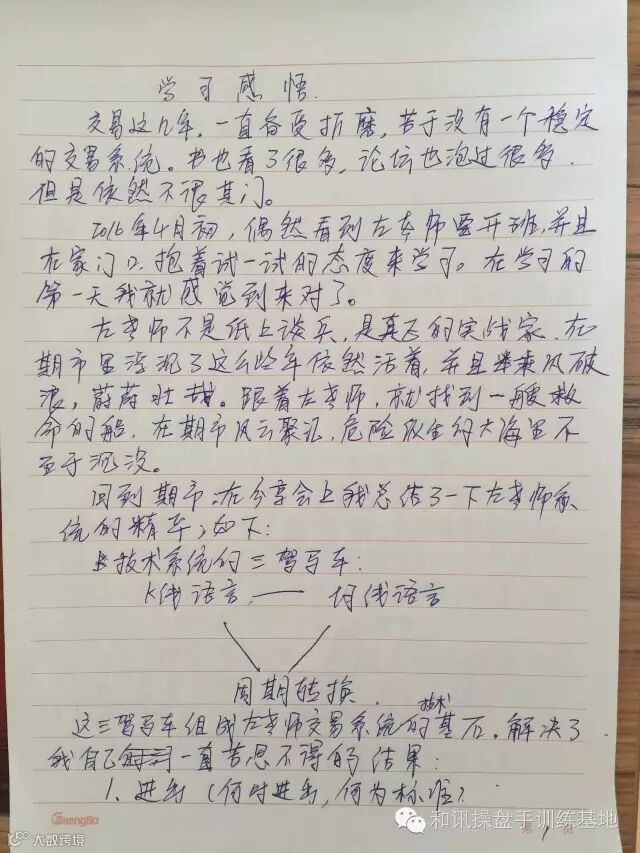 学习感悟.
交易这几年,一直备受折磨,苦于没有一个稳定
的交易系统。书也看了很多,论坛也泡过很多.
但是依然不得其门。
2016年4月初,偶然看到左老师要开班,并且
在家门口,抱着试一试的态度来学习。在学习的
第一天我就感觉到来对了。
左老师不是纸上谈兵,是真正的实战家,在
期市里沉沉了这么些年依然活着,并且乘风破
浪,蔚蔚壮哉。跟着左老师,就找到一艘救
命的船,在期市风云聚汇,危险丛生的大海里不
至于沉没。
回到期市,在分享会上我总结了一下左老师系
统的精华,如下:
技术系统的三驾马车:
K线语言 — 均线语言
周期转换.
这三驾马车组成左老师交易系统的技术基石。解决了
我自己一直苦思不得的结果:
1、进出(何时进出,何为标准)
GuangBo
第 1 页
和讯操盘手训练基地
大数跨境